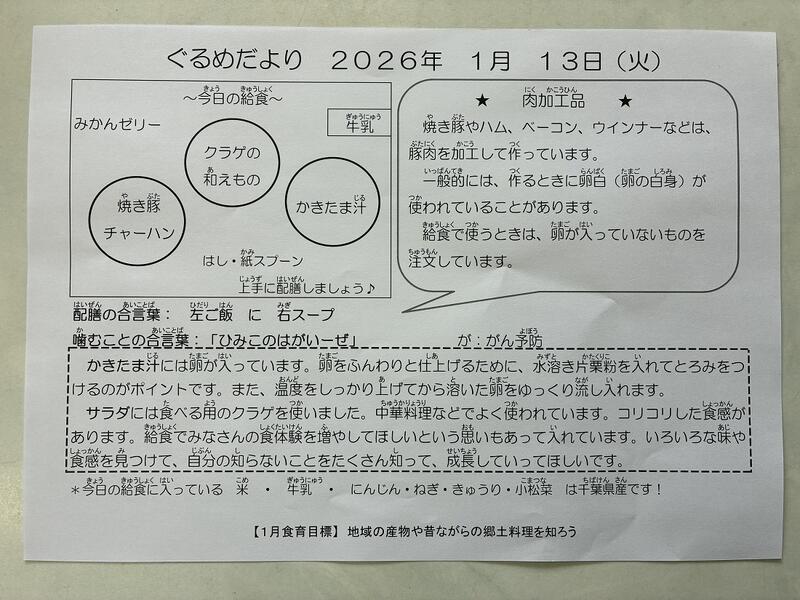 ぐるめだより　2026年　1月　13日（火）
～今日の給食～
みかんゼリー
牛乳
クラゲの
和えもの
焼き豚
チャーハン
かきたま汁
はし・紙スプーン
上手に配膳しましょう♪
★　肉加工品　★
焼き豚やハム、ベーコン、ウインナーなどは、
豚肉を加工して作っています。
一般的には、作るときに卵白（卵の白身）が
使われていることがあります。
給食で使うときは、卵が入っていないものを
注文しています。
配膳の合言葉：　左ご飯　に　右スープ
噛むことの合言葉：「ひみこのはがいーぜ」　が：がん予防
かきたま汁には卵が入っています。卵をふんわりと仕上げるために、水溶き片栗粉を入れてとろみをつ
けるのがポイントです。また、温度をしっかり上げてから溶いた卵をゆっくり流し入れます。
サラダには食べる用のクラゲを使いました。中華料理などでよく使われています。コリコリした食感が
あります。給食でみなさんの食体験を増やしてほしいという思いもあって入れています。いろいろな味や
食感を見つけて、自分の知らないことをたくさん知って、成長していってほしいです。
＊今日の給食に入っている　米　・　牛乳　・　にんじん・ねぎ・きゅうり・小松菜　は千葉県産です！
【1月食育目標】地域の産物や昔ながらの郷土料理を知ろう